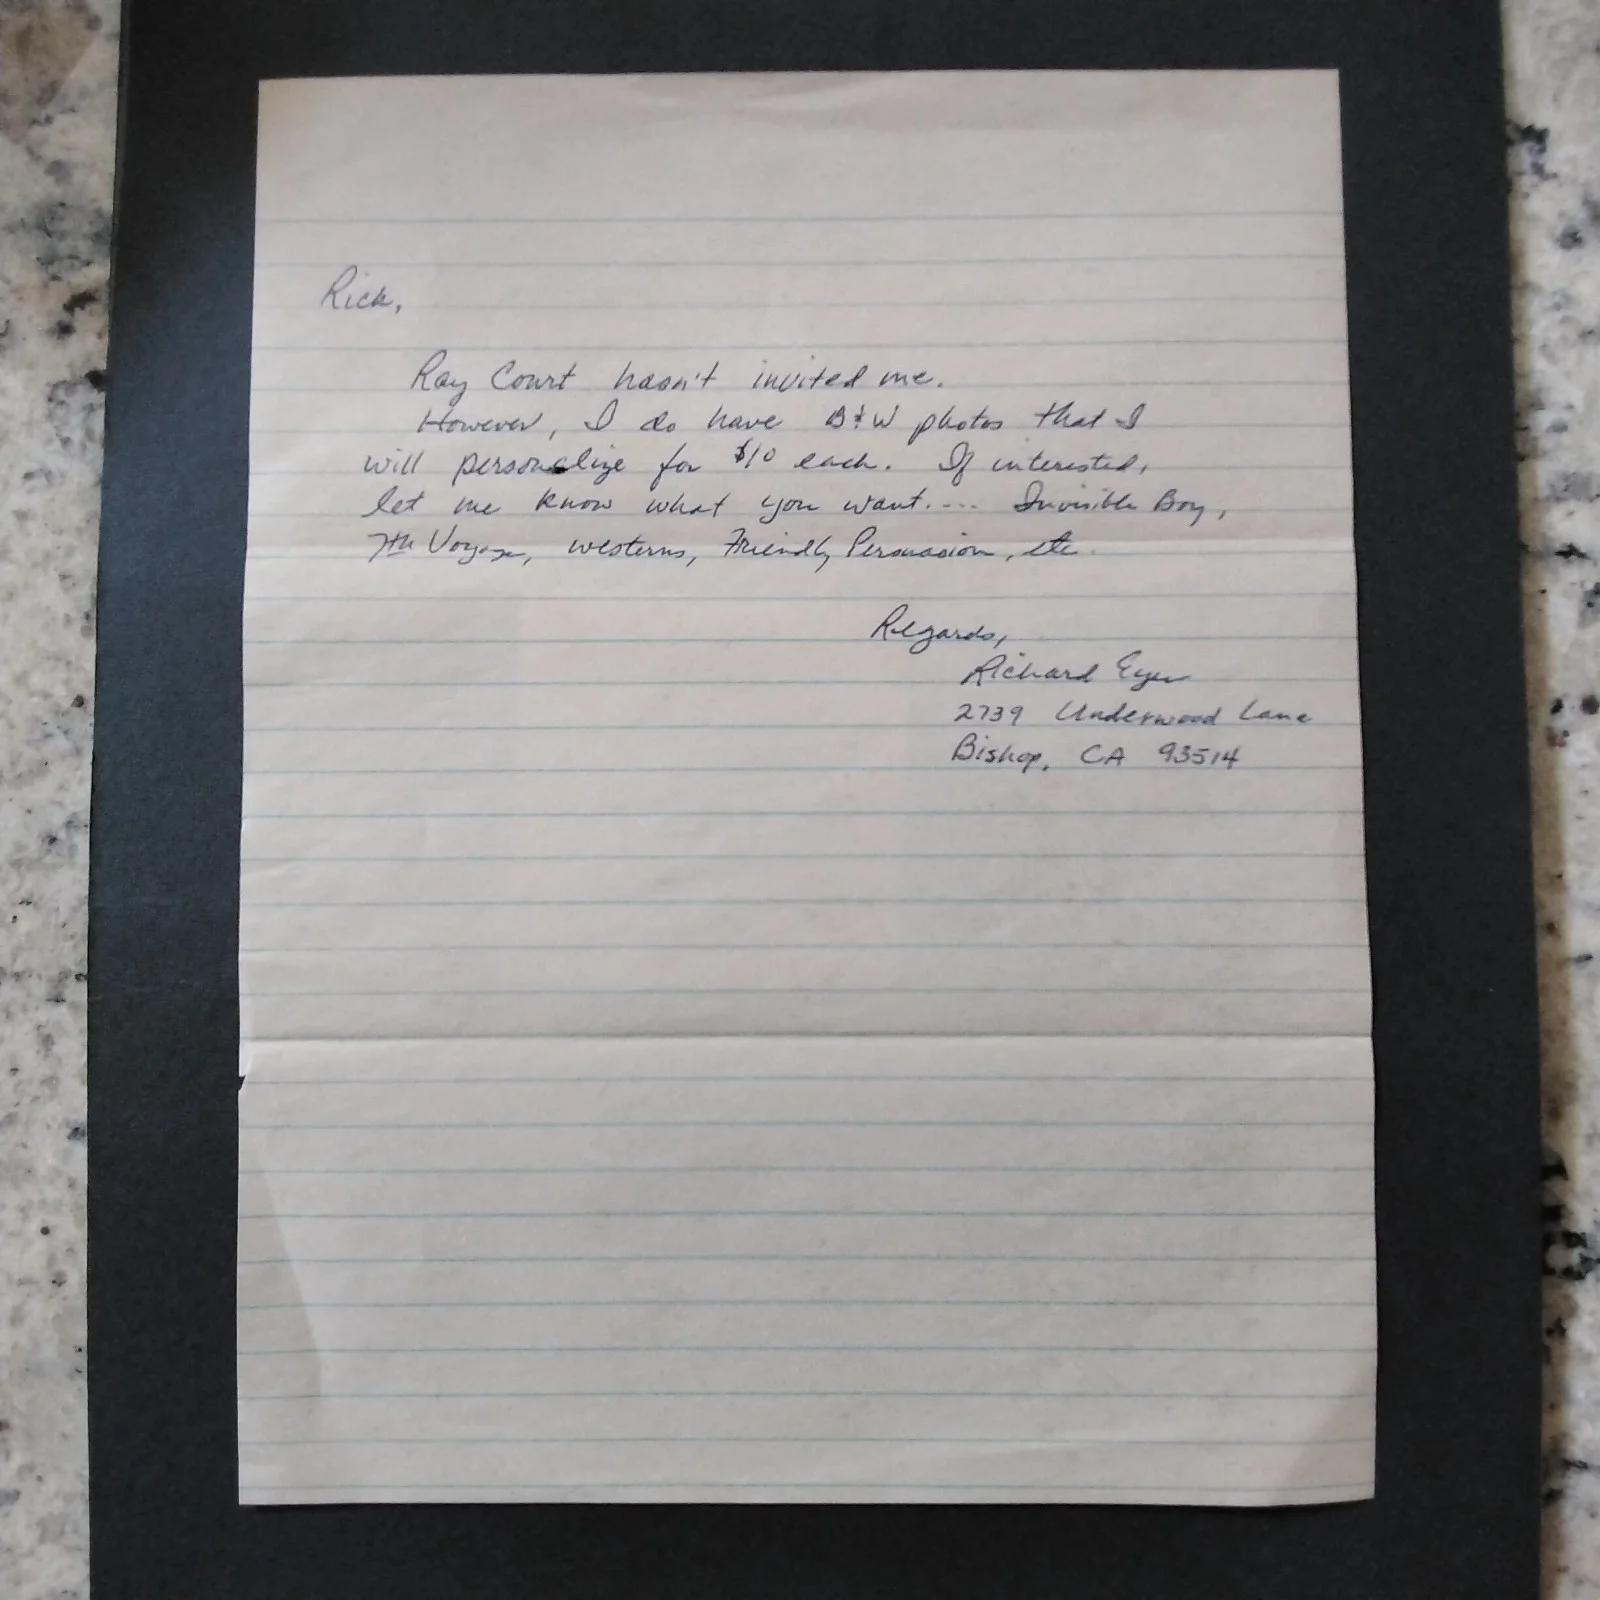 Rick,
Ray Court hasn't invited me.
However, I do have B&W photos that I
will personalize for $10 each. If interested,
let me know what you want.... Invisible Boy,
7th Voyage, westerns, Friendly Persuasion, etc.
Regards,
Richard Eyer
2739 Underwood Lane
Bishop, CA 93514